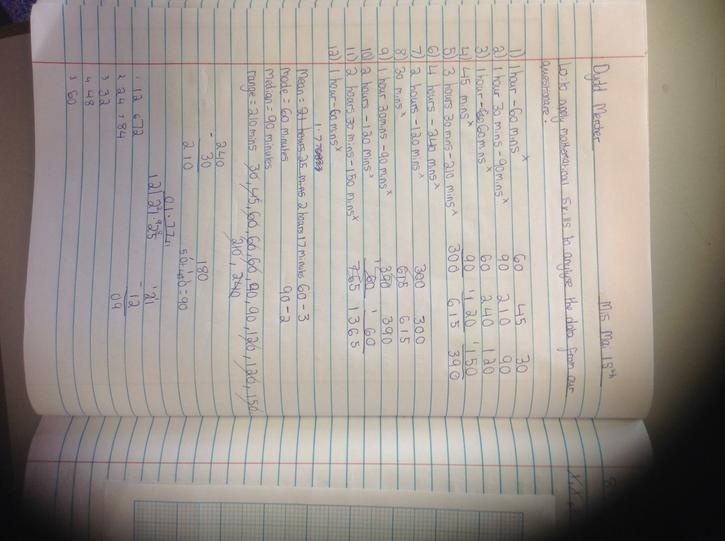 Dydd Mercher
Mis Mai 18th
Lo: to apply mathematical skills to analyse the data from our
questionare.
1) 1 hour - 60 mins x
2) 1 hour 30 mins - 90 mins x
3) 1 hour - 60 mins x
4) 45 mins x
5) 3 hours 30 mins - 210 mins x
6) 4 hours - 240 mins x
7) 2 hours - 120 mins x
8) 30 mins x
9) 1 hour 30 mins - 90 mins x
10) 2 hours - 120 mins x
11) 2 hours 30 mins - 150 mins x
12) 1 hour - 60 mins x
60 45 30
90 210 90
60 240 120
90 120 150
300 615 390
300 300
615
390 390
60 60
765 1365
Mean = 21 hours 25 mins 2 hours 17 minutes 60 - 3
Mode = 60 minutes 90 - 2
Median = 90 minutes
range = 210 mins 30, 45, 60, 60, 60, 90, 90, 120, 120, 150
210, 240
240
- 30
210
180
= 90
01.77
12 21.25
1 12
2 24
3 32
4 48
5 60
6 72
7 84
- 12
09